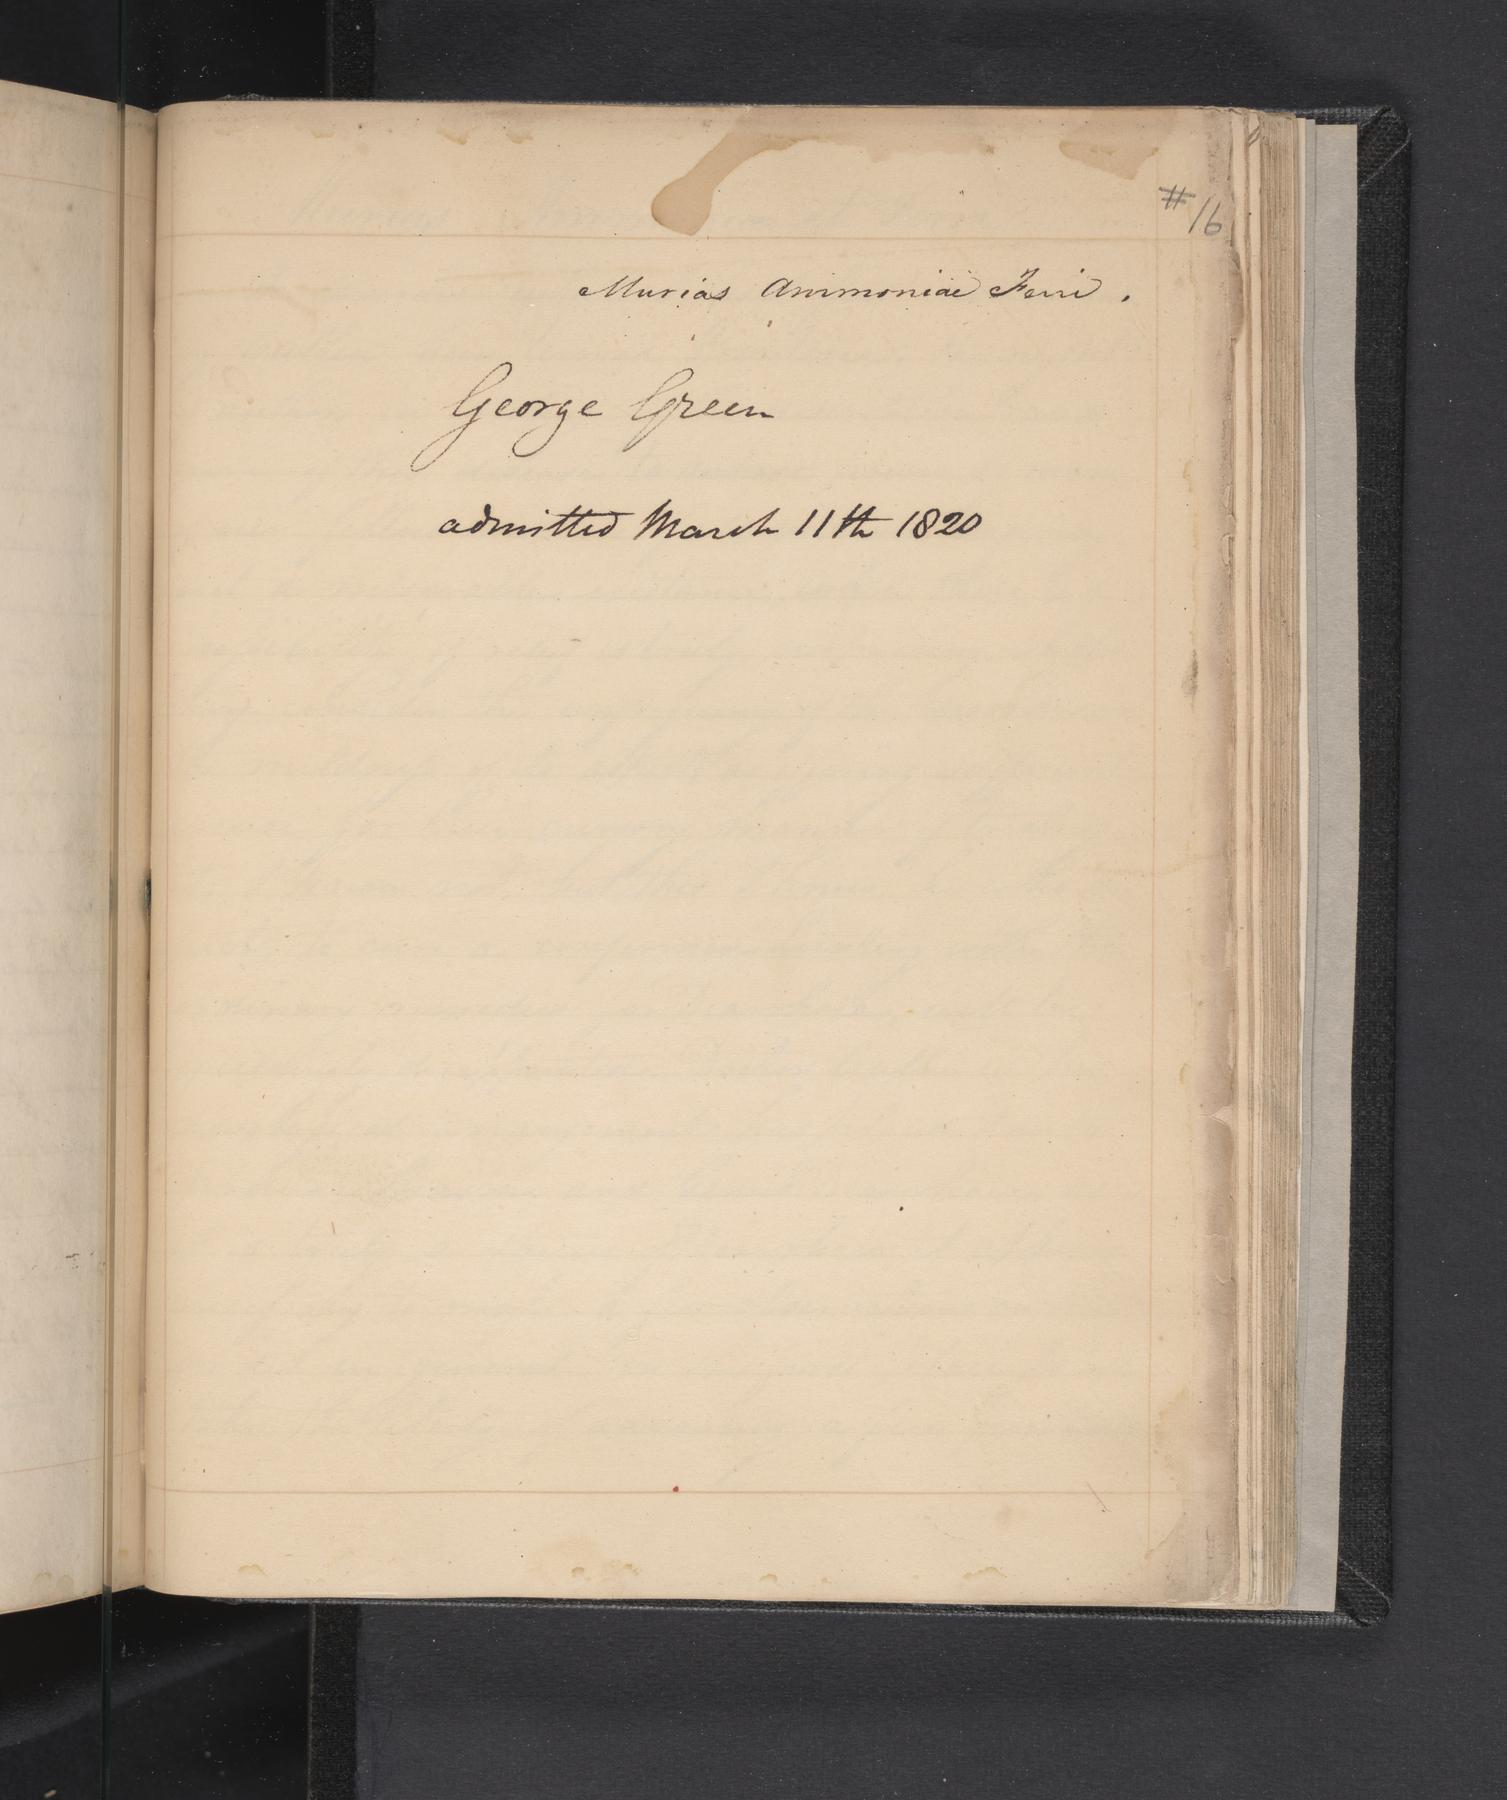 #16
Murias Ammoniae Ferri.
George Green
admitted March 11th 1820